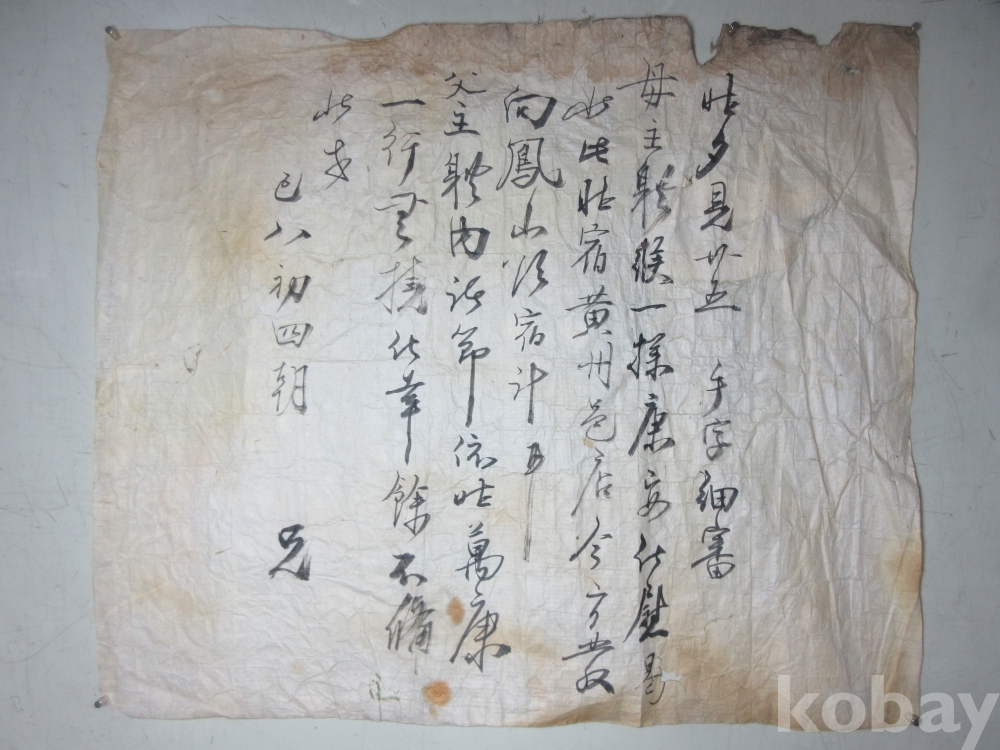 昨夕見廿五 手字細審
母主體候一樣康安 伏慰
此中昨宿黃州邑店今方發
向鳳山次宿計耳
父主體內諸節依昨萬康
一行無撓伏幸 餘不備
巳八初四朝 兄
kobay